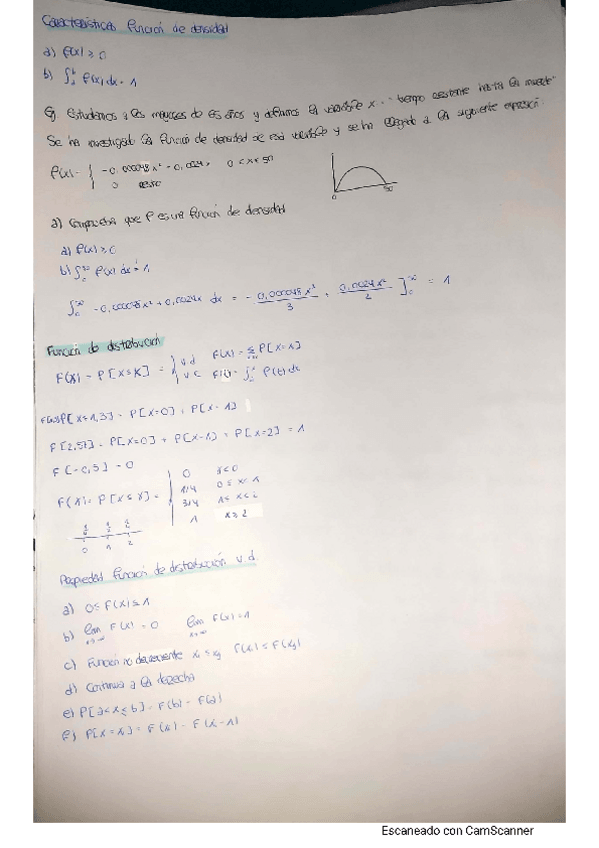 Características función de densidad
a) f(x) ≥ 0
b) ∫ₐᵇ f(x) dx = 1
Ej Estudiamos a las mujeres de 65 años y definimos la variable x = "tiempo restante hasta la muerte"
Se ha investigado la función de densidad de esa variable y se ha llegado a la siguiente expresión:
f(x) = { -0,000048x² + 0,0024x 0 < x < 50
0 resto
0 50
a) Comprueba que f es una función de densidad
a) f(x) ≥ 0
b) ∫ f(x) dx = 1
∫ -0,000048x² + 0,0024x dx = - 0,000048x³/3 + 0,0024x²/2 ] = 1
Función de distribución
F(x) = P[X ≤ x] = { v.d F(x) = Σ P[X = x]
v.c F(x) = ∫ f(t) dx
P[x ≤ 1,3] = P[X=0] + P[X=1]
F[2,57] = P[X=0] + P[X=1] + P[X=2] = 1
F[-0,5] = 0
F(x) = P[X ≤ x] = { 0 x<0
1/4 0 ≤ x < 1
3/4 1 ≤ x ≤ 2
1 x ≥ 2
0 1 2
Propiedad función de distribución v.d.
a) 0 ≤ F(x) ≤ 1
b) lim F(x) = 0 lim F(x) = 1
c) Función no decreciente x₁ ≤ x₂ F(x₁) ≤ F(x₂)
d) Continua a la derecha
e) P[a < x ≤ b] = F(b) - F(a)
f) P[X = xᵢ] = F(xᵢ) - F(xᵢ-1)
Escaneado con CamScanner